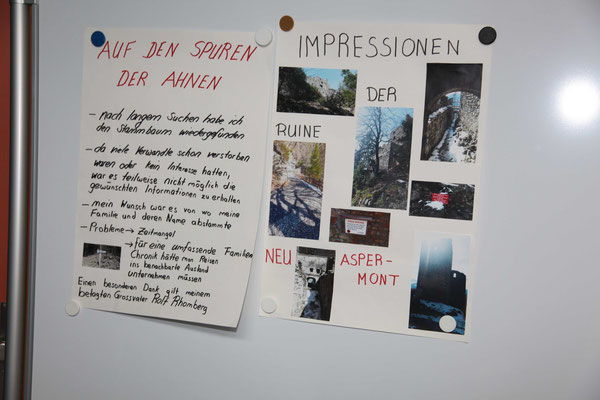 AUF DEN SPUREN
DER AHNEN
- nach langem Suchen habe ich
den Stammbaum wiedergefunden
- da viele Verwandte schon verstorben
waren oder kein Interesse hatten,
war es teilweise nicht möglich die
gewünschten Informationen zu erhalten
- mein Wunsch war es von wo meine
Familie und deren Name abstammte
- Probleme → Zeitmangel
→ für eine umfassende Familien
Chronik hätte man Reisen
ins benachbarte Ausland
unternehmen müssen
Einen besonderen Dank gilt meinem
betagten Grossvater Rolf Rhomberg
IMPRESSIONEN
DER
RUINE
NEU ASPER-
MONT